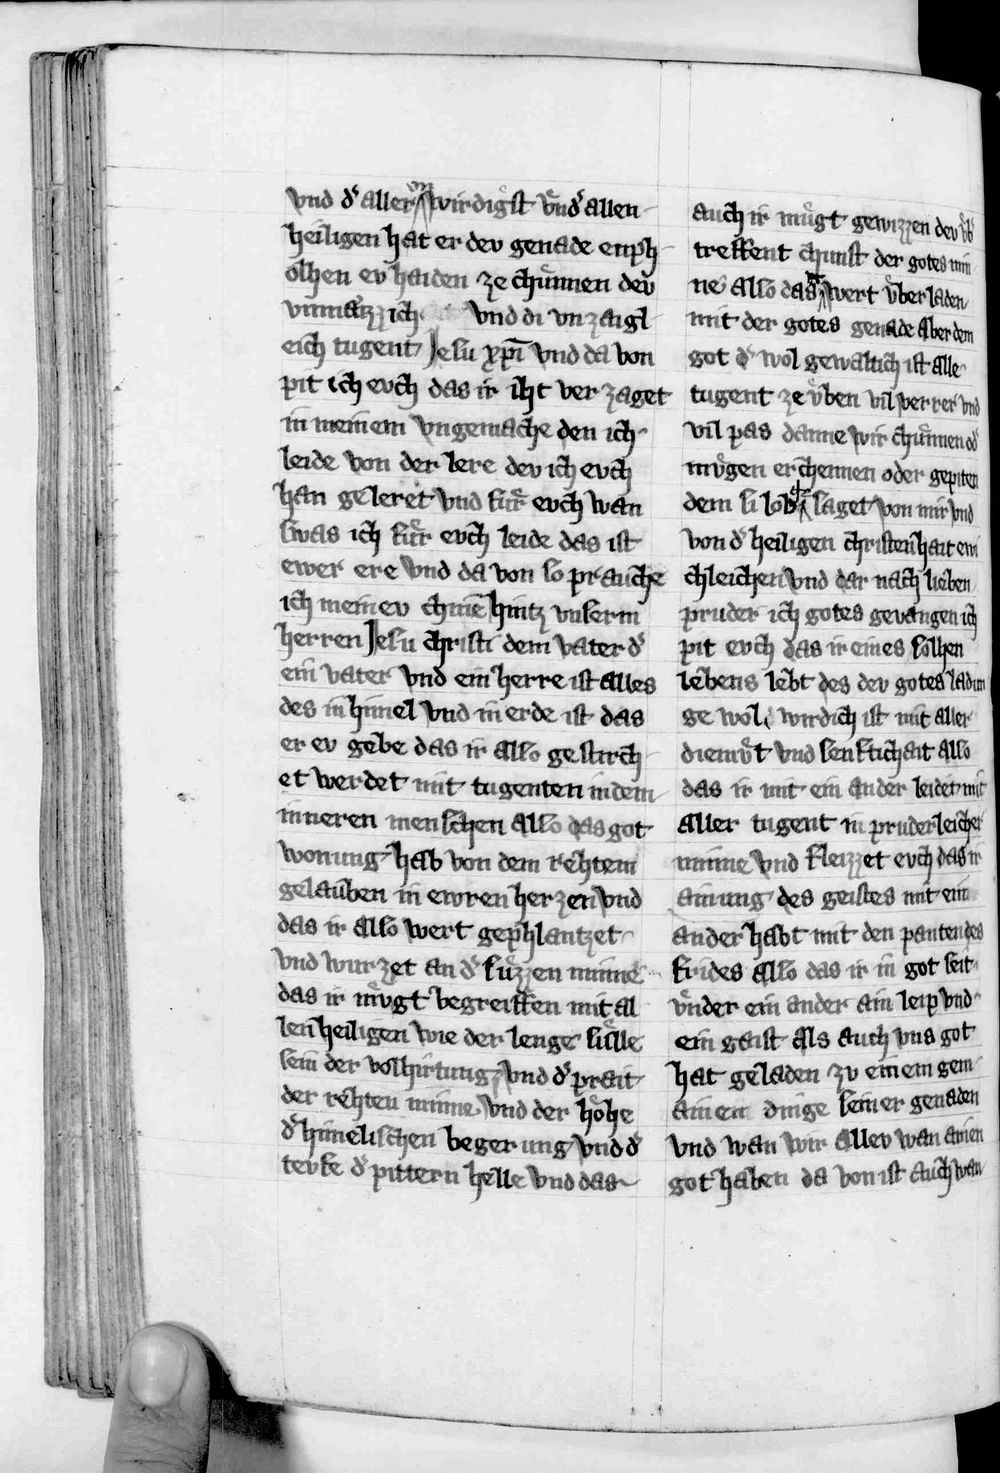 vnd d͛ aller vn wirdigͦst vnd͛ allen
heiligen hat er dev genade enph
olhen ev haiden ze chuͤnnen dev
vnmaͤzzich vnd di vnzaigl
eich tugent Jesu xp̄i vnd da von
pit ich evch das ir iht ver zaget
in meinem vngemache den ich
leide von der lere dev ich evch
han geleret vnd fuͤr evch wan
swas ich fuͤr evch leide das ist
ewer ere vnd da von so prauche
ich meinev chnie hintz vnserm
herren Jesu christi dem vater d͛
ein vater vnd ein herre ist alles
des in himel vnd in erde ist das
er ev gebe das ir also gestirch
et werdet mit tugenten in dem
inneren menschen also das got
wonung hab von dem rehtem
gelauben in ewren herzen vnd
das ir also wert gephlantzet
vnd wurzet an d͛ suͤzzen minne
das ir muͤgt begreiffen mit al
len heiligen wie der lenge suͤlle
sein der volhirtung vnd d͛ prait
der rehten minne vnd der hoͤhe
d͛ himelischen begerung vnd d͛
teyfe d͛ pittern helle vnd das
auch ir muͤgt gewizzen dev vͤb͛
treffent chunst der gotes min
ne also das ir wert vͤberladen
mit der gotes genade aber dem
got d͛ wol gewaltich ist alle
tugent ze vͤben vil verrer vnd
vil pas danne wir chuͤnnen od͛
muͤgen erchennen oder gepiten
dem si lob gesaget von mir vnd
von d͛ heiligen christenhait ewi
chleichen vnd dar nach lieben
pruder ich gotes gevangen ich
pit evch das ir eines solhen
lebens lebt des dev gotes ladun
ge wol wirdich ist mit aller
diemuͤt vnd senftichait also
das ir mit ein ander leidet mit
aller tugent in pruderleicher
minne vnd fleizzet evch das ir
ainung des geistes mit ein
ander habt mit den panten des
frides also das ir in got seit
vnder ein ander ain leip vnd
ein gaist als auch vns got
hat geladen zv einem gem
ainen dinge seiner genaden
vnd wan wir allev wan ainen
got haben da von ist auch wan